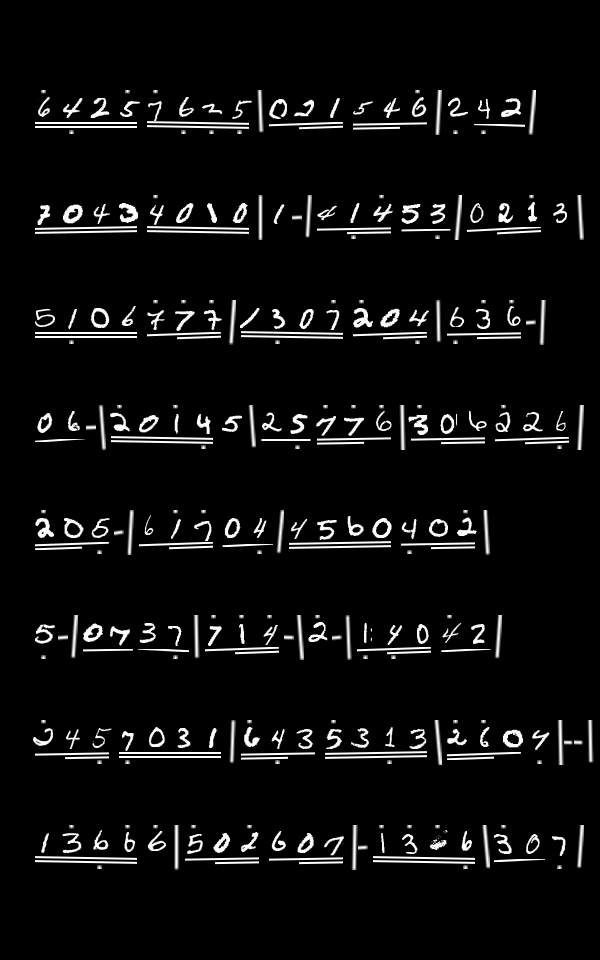 64257625|021546|242
70434010|1-|41453|0213
5106777|1307204|636-
06-|20145|25776|306226
205-|61704|4560402
5-|0737|714-|2-|140424
2457031|6435313|2607|--|
13666|502607|-1366|307|